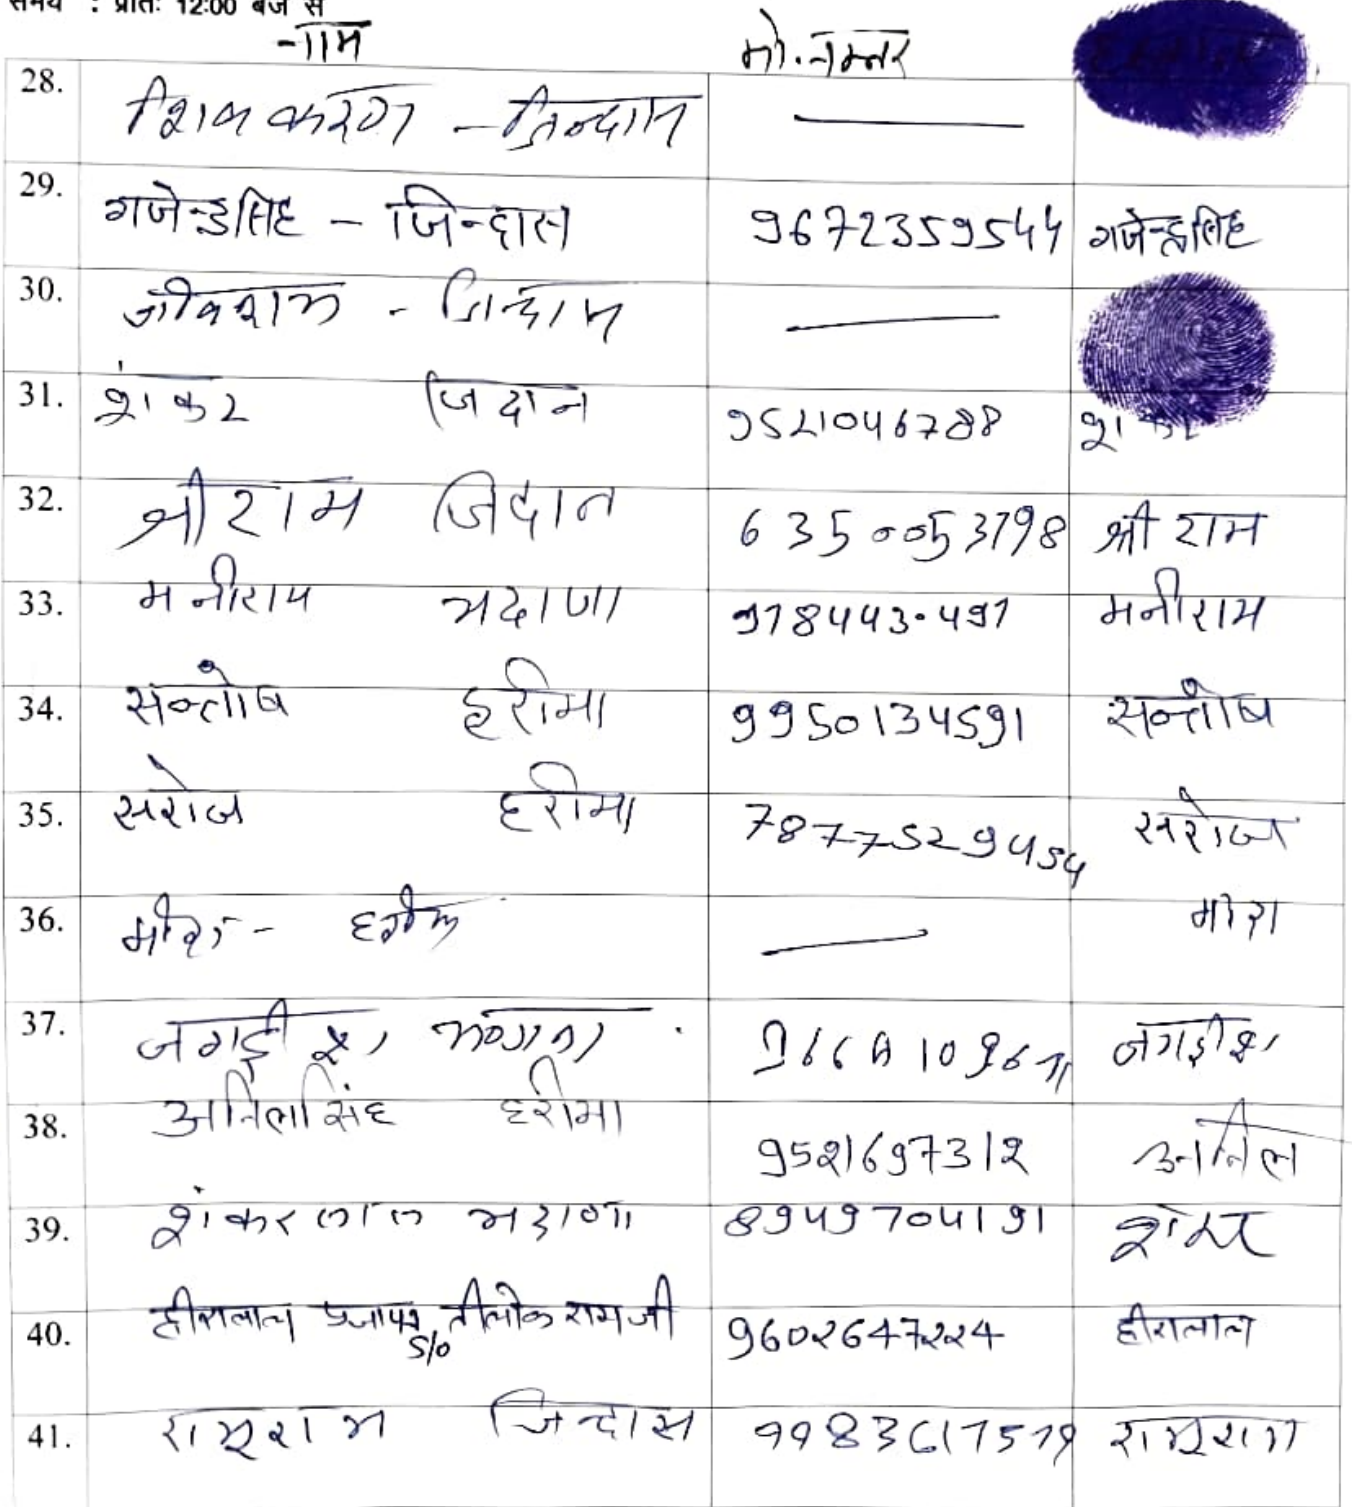 समय : प्रातः 12:00 बजे से
नाम मो. नम्बर
28. शिवकरण - जिन्दास
29. गजेन्द्रसिंह - जिन्दास 9672359544 गजेन्द्रसिंह
30. जीवराम - जिन्दास
31. शंकर जिदान 9521046788 शंकर
32. श्रीराम जिदान 6350053798 श्री राम
33. मनीराम भदाणा मनीराम
34. सन्तोष हरीमा 9950134591 सन्तोष
35. सरोज हरीमा 7877529454 सरोज
36. मीरा - मीरा
37. जगदीश जगदीश
38. अनिलसिंह हरीमा 9521697312 अनिल
39. शंकर लाल भदाणा 8949704191 शंकर
40. हीरालाल प्रजापत S/o तीलोक रामजी 9602647224 हीरालाल
41. रामूराम जिन्दास 9983617519 रामूराम